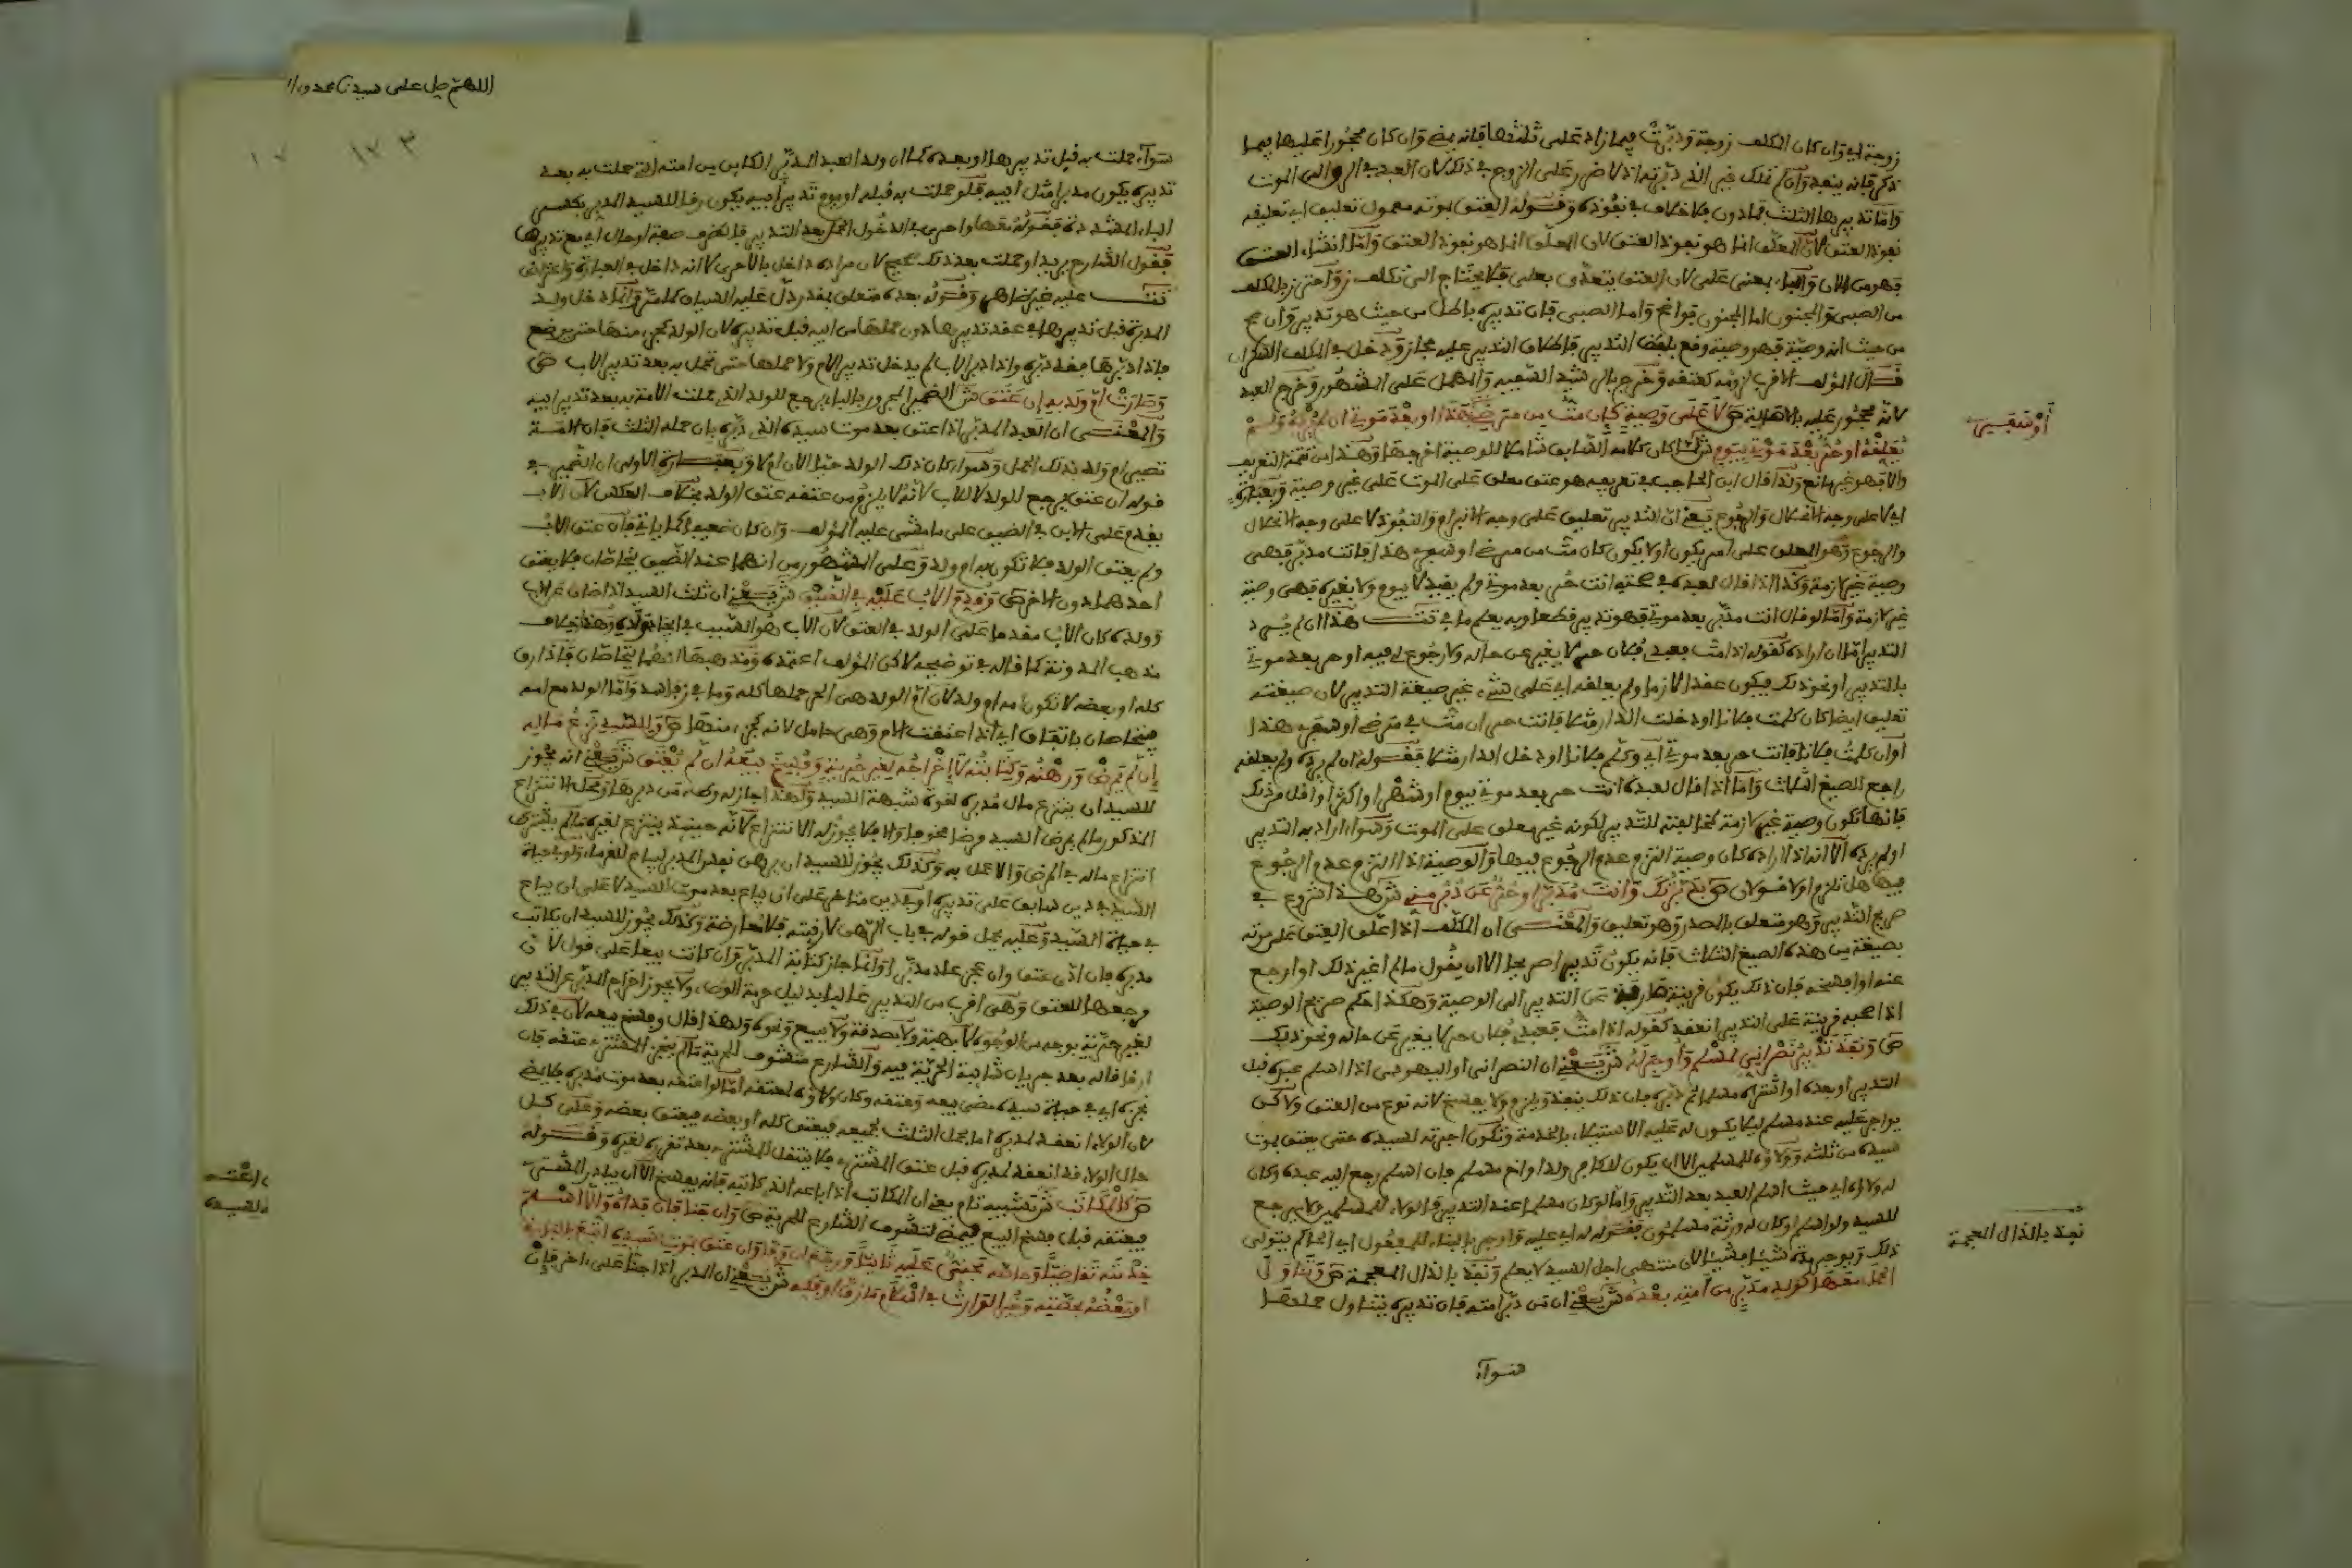 زوجة اي وان كان المكلف زوجة ودبرت فيما زاد على ثلثها فانه يمضي وان كان محجورا عليها فيما
ذكر فانه ينفذ وان لم تملك غير الذي دبرته اذ لا ضرر على الزوج في ذلك لان العبد في الرق الى الموت
واما تدبيرها الثلث فما دون فلا خلاف في نفوذه وقوله العتق بموته معمول تعليق اي تعليقه
نفوذ العتق لان المعلق انما هو نفوذ العتق واما انشاء العتق
فهو من الان والباء بمعنى على لان العتق يتعدى بعلى فلا يحتاج الى تكلف واحترز بالمكلف
من الصبي والمجنون اما المجنون فواضح واما الصبي فان تدبيره باطل من حيث هو تدبير وان صح
من حيث انه وصية فهو وصية وقع بلفظ التدبير فاطلاق التدبير عليه مجاز ودخل في المكلف السكران
قال المؤلف الاقرب لزومه كعتقه وخرج بالرشيد السفيه والمهمل على المشهور وخرج العبد
لانه محجور عليه بالاصالة ص لا على وصية كان مت من مرضي هذا او بعد موتي ان لم يرده ولم
يعلقه او حر بعد موتي بيوم ش لما كان كلامه السابق شاملا للوصية اخرجها وهذا من تتمة التعريف
والا فهو غير مانع ولذا قال ابن الحاجب في تعريفه هو عتق معلق على الموت على غير وصية
اي لا على وجه الانحلال والرجوع يعني ان التدبير تعليق على وجه الانبرام والنفوذ لا على وجه الانحلال
والرجوع وهو المعلق على امر يكون او لا يكون كان مت من مرضي او سفري هذا فانت مدبر فهي
وصية غير لازمة وكذا اذا قال لعبده في صحته انت حر بعد موتي ولم يقيد لا بيوم ولا بغيره فهي وصية
غير لازمة واما لو قال انت مدبر بعد موتي فهو تدبير قطعا وبه يعلم ما في تت هذا ان لم يرد
التدبير اما ان اراده كقوله اذا مت فعبدي فلان حر لا يغير عن حاله ولا رجوع لي فيه او حر بعد موتي
بالتدبير او نحو ذلك فيكون عقدا لازما ولم يعلقه اي على شيء غير صيغة التدبير لان صيغته
تعليق ايضا كان كلمت فلانا او دخلت الدار مثلا فانت حر ان مت في مرضي او سفري هذا
او ان كلمت فلانا فانت حر بعد موتي اي وكلم فلانا او دخل الدار مثلا فقوله ان لم يرده ولم يعلقه
راجع للصيغ الثلاث واما اذا قال لعبده انت حر بعد موتي بيوم او شهر او اكثر او اقل من ذلك
فانها تكون وصية غير لازمة لمخالفته للتدبير لكونه غير معلق على الموت وسواء اراد به التدبير
او لم يرده الا انه اذا اراده كان وصية التزم عدم الرجوع فيها والوصية اذا التزم عدم الرجوع
فيها هل تلزم او لا قولان ص بدبرتك وانت مدبر او حر عن دبر مني ش هذا شروع في
صريح التدبير وهو متعلق بالمصدر وهو تعليق والمعنى ان المكلف اذا علق العتق على موته
بصيغة من هذه الصيغ الثلاث فانه يكون تدبيرا صريحا الا ان يقول ما لم اغير ذلك او ارجع
عنه او افسخه فان ذلك يكون قرينة صارفة عن التدبير الى الوصية وهكذا حكم صريح الوصية
اذا صحبه قرينة على التدبير انعقد كقوله اذا مت فعبدي فلان حر لا يغير عن حاله ونحو ذلك
ص ونفذ تدبير نصراني لمسلم وأوجر له ش يعني ان النصراني او اليهودي اذا اسلم عبده قبل
التدبير او بعده او اشتراه مسلما ثم دبره فان ذلك ينفذ ويلزم ولا يفسخ لانه نوع من العتق ولا كن
يواجر عليه عند مسلم ليلا يكون له عليه الاستيلاء بالخدمة وتكون اجرته لسيده حتى يعتق بموت
سيده من ثلثه وولاؤه للمسلمين الا ان يكون للكافر ولد او اخ مسلم فان اسلم رجع اليه عبده وكان
له ولاؤه اي حيث اسلم العبد بعد التدبير واما لو كان مسلما عند التدبير فالولاء للمسلمين ولا يرجع
للسيد ولو اسلم او كان له ورثة مسلمون فقوله له اي عليه واوجر بالبناء للمفعول اي الحاكم يتولى
ذلك ويوجره شيئا فشيئا لا الى منتهى اجل السيد لا يعلم ونفذ بالذال المعجمة ص وتناول
الحمل معها كولد مدبر من امته بعده ش يعني ان من دبر امته فان تدبيره يتناول حملها
سواء
أو سفري
نفذ بالذال المعجمة
اللهم صل على سيدنا محمد وا
١٧٣
سواء حملت به قبل تدبيرها او بعده كما ان ولد العبد المدبر الكاين من امته التي حملت به بعد
تدبيره يكون مدبرا مثل ابيه فلو حملت به قبله او يوم تدبير ابيه يكون رقا للسيد المدبر بكسر
الباء المشددة فقوله معها واحرى في الدخول الحمل بعد التدبير
فقول الشارح يريد او حملت بعد ذلك صحيح لان مراده داخل بالاحرى لا انه داخل في العبارة واعتراض
تت عليه غير ظاهر وقوله بعده متعلق بمقدر دل عليه السياق كما مر وانما دخل ولد
المدبرة قبل تدبيرها في عقد تدبيرها دون حملها من ابيه قبل تدبيره لان الولد كجزء منها حتى يوضع
فاذا دبرها فقد دبره واذا دبر الاب لم يدخل تدبير الام ولا حملها حتى تحمل به بعد تدبير الاب ص
وصارت ام ولد به إن عتق ش الضمير المجرور بالباء يرجع للولد الذي حملت الامة به بعد تدبير ابيه
والمعنى ان العبد المدبر اذا عتق بعد موت سيده الذي دبره بان حمله الثلث فان امته
تصير ام ولد بذلك الحمل وسواء كان ذلك الولد حيا الان ام لا وبعبارة الاولى ان الضمير في
قوله ان عتق يرجع للولد لا للاب لانه لا يلزم من عتقه عتق الولد بخلاف العكس لان الاب
يقدم على الابن في الضيق على ما مشى عليه المؤلف وان كان ضعيفا كما ياتي فان عتق الاب
ولم يعتق الولد فلا تكون به ام ولد وعلى المشهور من انهما عند الضيق يتحاصان فلا يعتق
احدهما دون الاخر ص وقدم الاب عليه في الضيق ش يعني ان ثلث السيد اذا ضاق عن الاب
وولده كان الاب مقدما على الولد في العتق لان الاب هو السبب في ايجاد ولده وهذا خلاف
مذهب المدونة كما قاله في توضيحه لاكن المؤلف اعتمده ومذهبها انهما يتحاصان فاذا رق
كله او بعضه لا تكون امه ام ولد لان ام الولد هي الحر حملها كله وما في ز فاسد واما الولد مع امه
فيتحاصان باتفاق اي اذا اعتقت الام وهي حامل لانه كجزء منها ص وللسيد نزع ماله
إن لم يمرض ورهنه وكتابته لا إخراجه لغير حرية وفسخ بيعه ان لم يعتق ش يعني انه يجوز
للسيد ان ينتزع مال مدبره لقوة شبهة السيد ولهذا اجاز له وطء من دبرها ومحل الانتزاع
المذكور ما لم يمرض السيد مرضا مخوفا والا فلا يجوز له الانتزاع لانه حينئذ ينتزع لغيره ما لم يشترط
انتزاع ماله في المرض والا عمل به وكذلك يجوز للسيد ان يرهن نفس المدبر ليباع للغرماء ولو في حياة
السيد في دين سابق على تدبيره او في دين متاخر على ان يباع بعد موت السيد لا على ان يباع
في حياة السيد وعليه يحمل قوله في باب الرهن لا رقبته فلا معارضة وكذلك يجوز للسيد ان يكاتب
مدبره فان ادى عتق وان عجز عاد مدبرا وانما جاز كتابة المدبر وان كانت بيعا على قول لان
مرجعها للعتق وهي اقرب من التدبير غالبا بدليل حرمة الوطء ولا يجوز اخراج المدبر عن التدبير
لغير حرية بوجه من الوجوه لا بهبة ولا بصدقة ولا ببيع ونحوه ولهذا قال وفسخ بيعه لان في ذلك
ارقاقا له بعد جريان شايبة الحرية فيه والشارع متشوف للحرية ما لم ينجز المشتري عتقه فان
نجزه اي في حياة سيده مضى بيعه وعتقه وكان ولاؤه لمعتقه اما لو اعتقه بعد موت مدبره فلا يمضي
لان الولاء انعقد لمدبره اما بحمل الثلث لجميعه فيعتق كله او بعضه فيعتق بعضه وعلى كل
حال الولاء قد انعقد لمدبره قبل عتق المشتري فلا ينتقل للمشتري بعد تقرره لغيره وقوله
ص كالمكاتب ش تشبيه تام يعني ان المكاتب اذا باعه الذي كاتبه فانه يفسخ الا ان يبادر المشتري
فيعتقه قبل فسخ البيع فيمضي لتشوف الشارع للحرية ص وان جنا فإن فداه وإلا اسلم
خدمته تقاضيا وحاصه مجني عليه ثانيا ورجع ان وفى وان عتق بموت سيده اتبع بالباقي
او بعضه بحصته وخير الوارث في اسلام ما رق او فكه ش يعني ان المدبر اذا جنا على اخر فإن